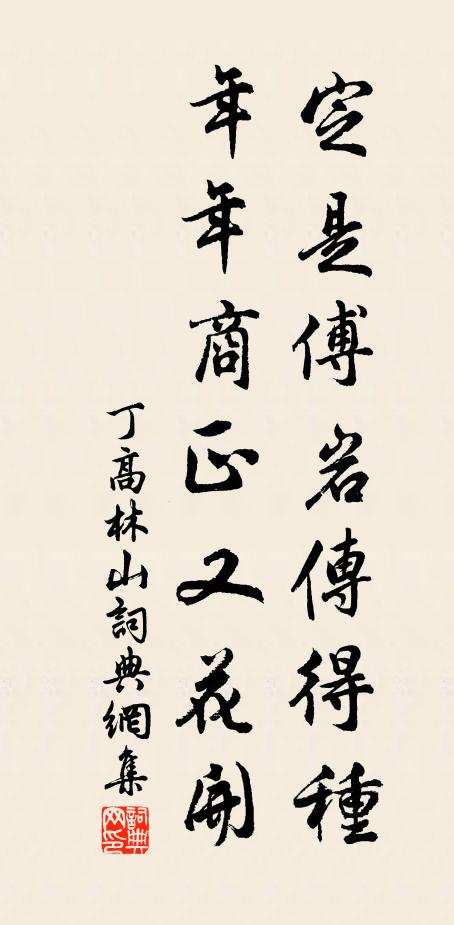 定是傅岩傳得種
年年商正又花開
丁高林山詞典網集
詞典網印